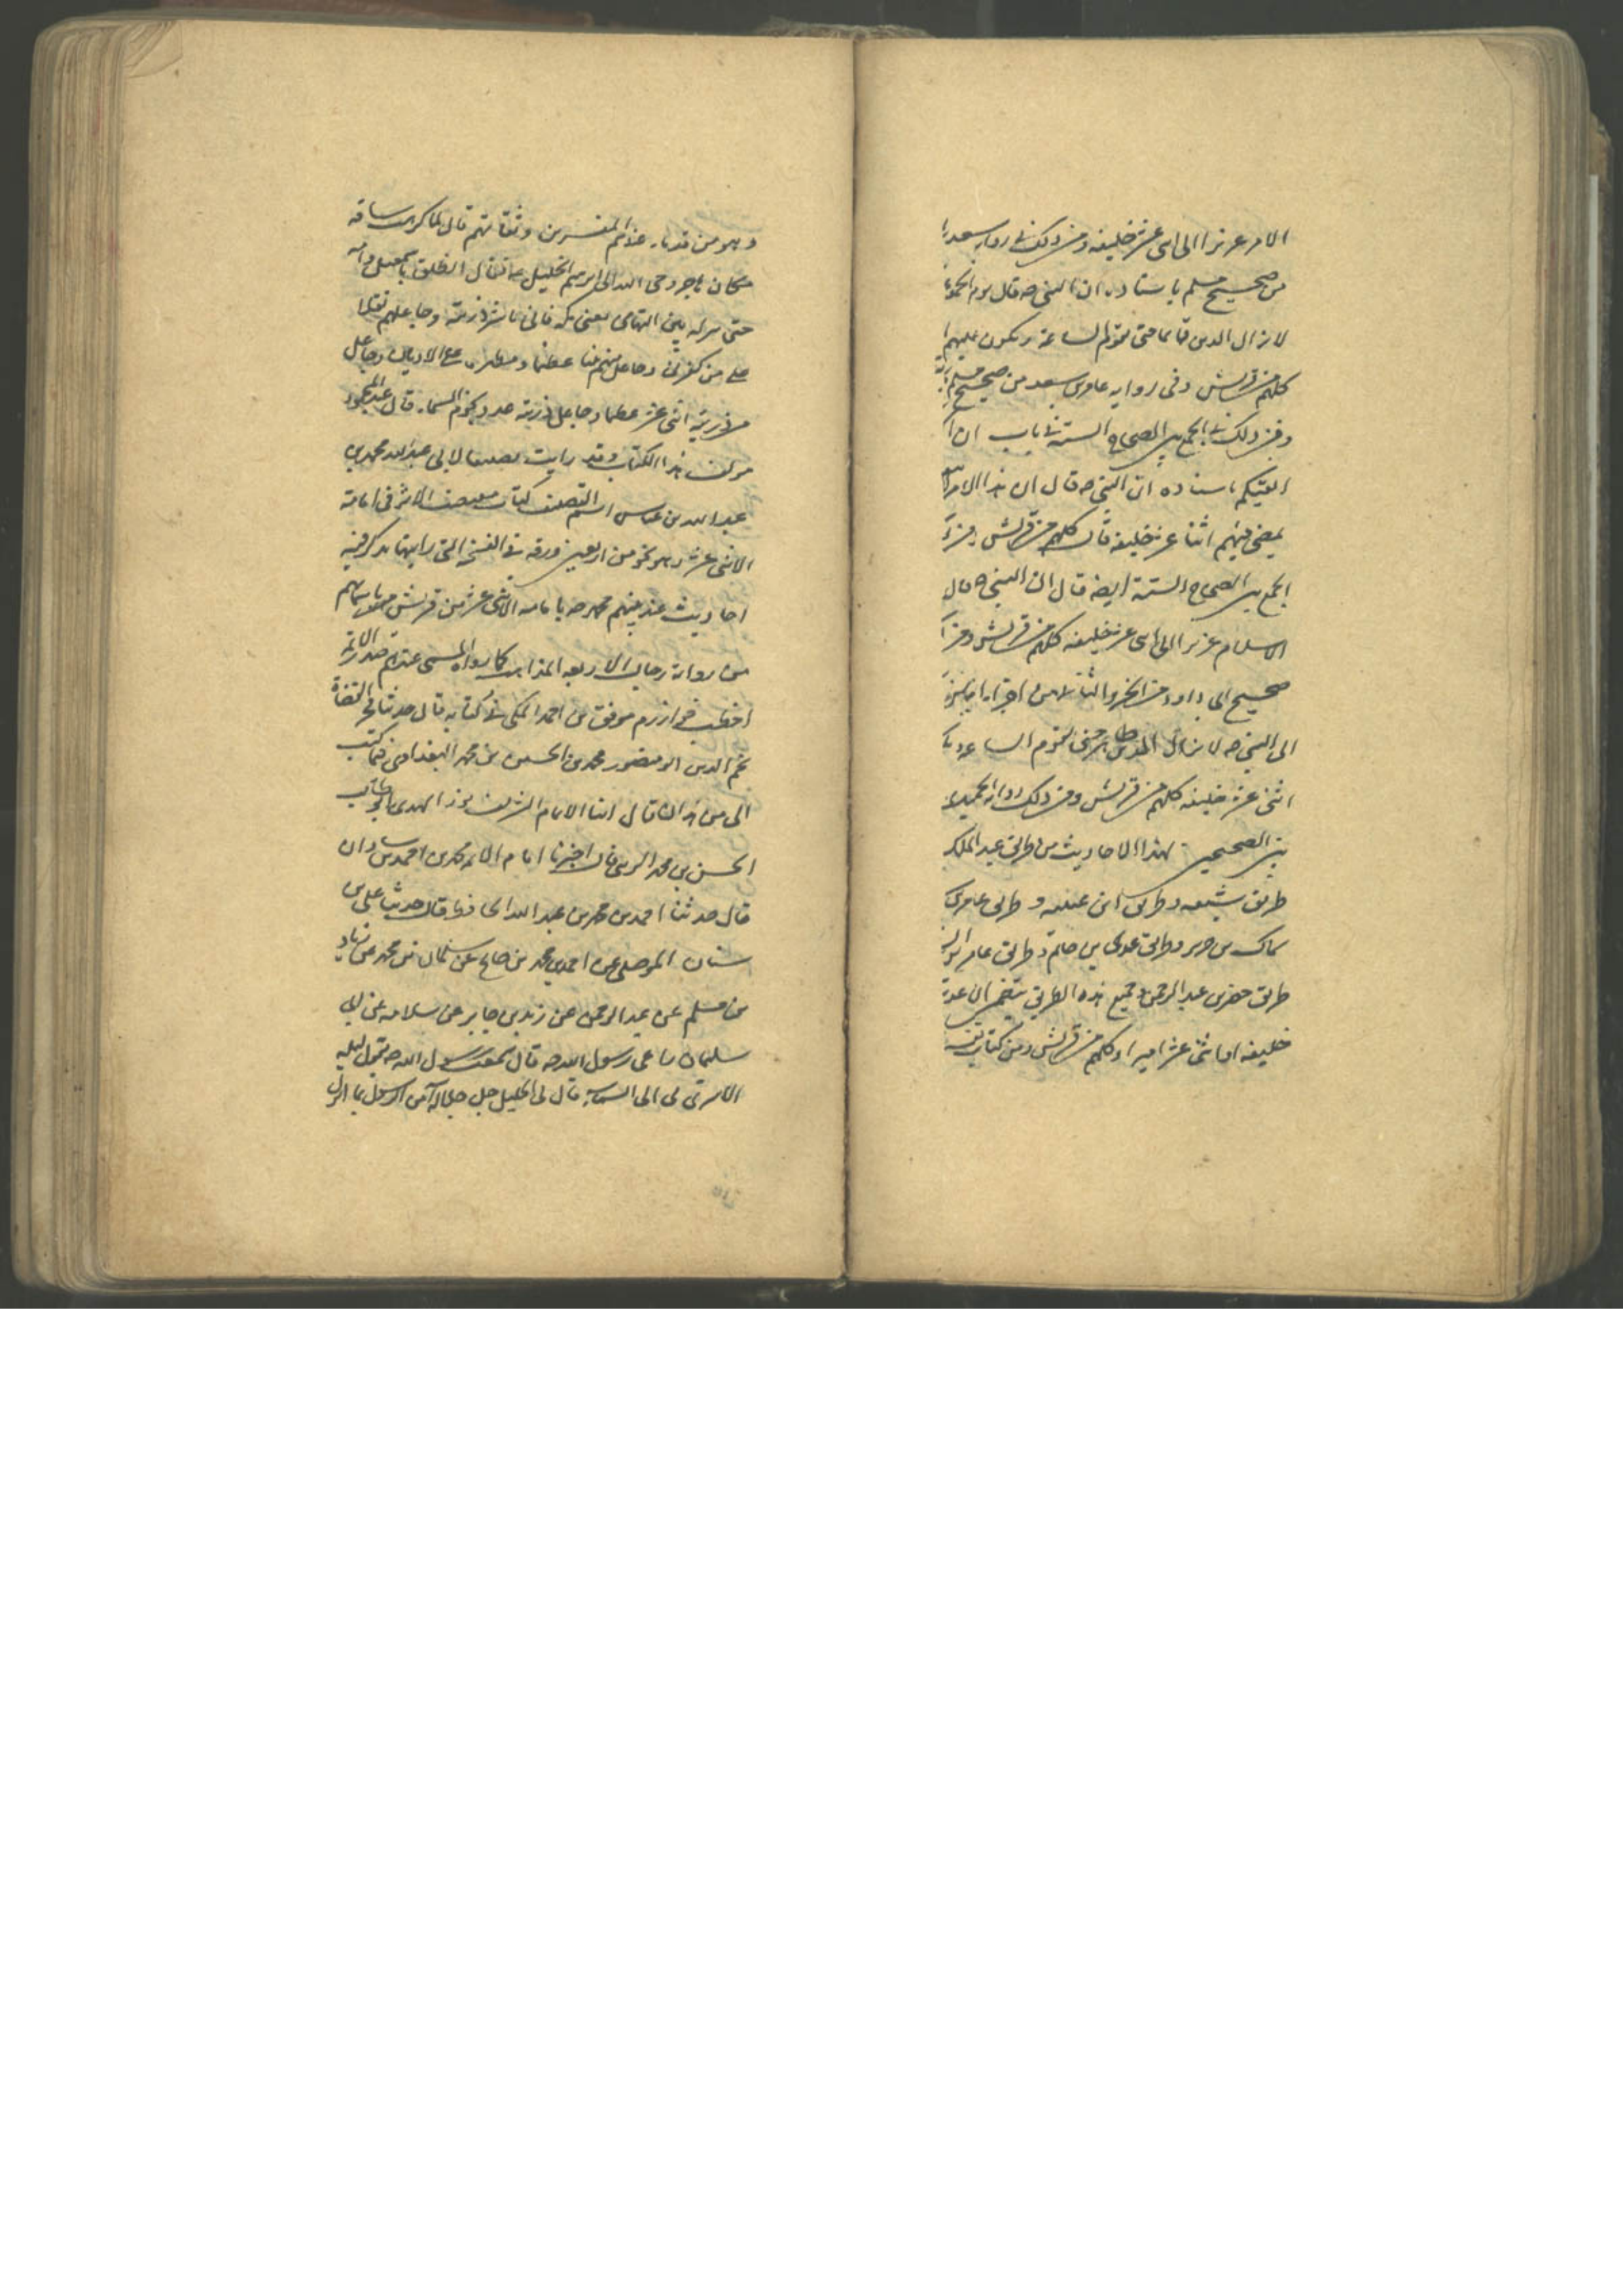 الامر عزيزا الى اثنى عشر خليفة ومن ذلك فى رواية سعد
من صحيح مسلم باسناده ان النبى ص قال يوم الجمعة
لا يزال الدين قائما حتى تقوم الساعة ويكون عليهم
كلهم من قريش وفى رواية عامر بن سعد من صحيح مسلم
ومن ذلك فى الجمع بين الصحاح الستة فى باب ان
اتقيكم باسناده ان النبى ص قال ان هذا الامر لا
يمضى فيهم اثنا عشر خليفة قال كلهم من قريش
الجمع بين الصحاح الستة ايضه قال ان النبى ص قال
الاسلام عزيزا الى اثنى عشر خليفة كلهم من قريش ومن
صحيح ابى داود من الجزو الثانى من اجزاء
الى النبى ص لا يزال الدين ظاهرا حتى تقوم الساعة
اثنى عشر خليفة كلهم من قريش ومن ذلك رواية الحميدى
بين الصحيحين لهذا الاحاديث من طريق عبد الملك
طريق شعبه وطريق ابن عيينه و طريق عامر بن
سماك بن حرب وطريق عدى بن حاتم وطريق عامر
طريق حصين بن عبد الرحمن وجميع هذه الطريق يتضمن ان عدة
خليفه او اثنى عشر اميرا وكلهم من قريش ومن كتاب تفسير
وهو من قدماء عند المفسرين وثقاتهم قال لما كرهت ساره
مكان هاجر وحى الله الى ابرهيم الخليل ع فقال انطلق باسمعيل وامه
حتى تنزله بيتى التهامى يعنى مكه فانى ناشر ذريته وجاعلهم ثقلا
على من كفر بى وجاعل منهم نبيا عظيما ومظهره على الاديان وجاعل
من ذريته اثنى عشر عظيما وجاعل ذريته عدد نجوم السماء قال عبد المحمود
مولف هذا الكتاب وقد رايت تصنيفا لابى عبد الله محمد بن
عبد الله بن عياش اسم التصنيف كتاب مقتضب الاثر فى امامة
الاثنى عشر وهو نحو من اربعين ورقة فى النسخة التى رايتها يذكر فيه
احاديث عن نبيهم محمد ص بامامه الاثنى عشر من قريش باسمائهم
من رواة رجال الاربعه المذاهب كما رواه المسمى عندهم صدر الائمة
اخطب خوارزم موفق بن احمد المكى فى كتابه قال حدثنا فخر القضاة
نجم الدين ابو منصور محمد بن الحسين بن محمد البغدادى فيما كتب
الى من همدان قال انبا الامام الشريف نور الهدى ابو طالب
الحسن بن محمد الزينبى قال اخبرنا امام الائمه محمد بن احمد بن شاذان
قال حدثنا احمد بن محمد بن عبد الله الحافظ قال حدثنا على بن
سنان الموصلى عن احمد بن محمد بن صالح عن سلمان بن محمد عن زياد
بن مسلم عن عبد الرحمن عن زيد بن جابر عن سلامه عن ابى
سليمان راعى رسول الله ص قال سمعت رسول الله ص يقول ليله
اسرى بى الى السماء قال لى الجليل جل جلاله آمن الرسول بما انزل